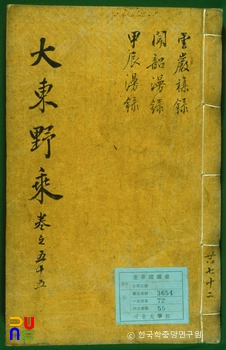 雲巖雜錄
聞韶漫錄
甲辰漫錄
大東野乘 卷之五十五
共七十二
3654
72
55
ⓒ 한국학중앙연구원